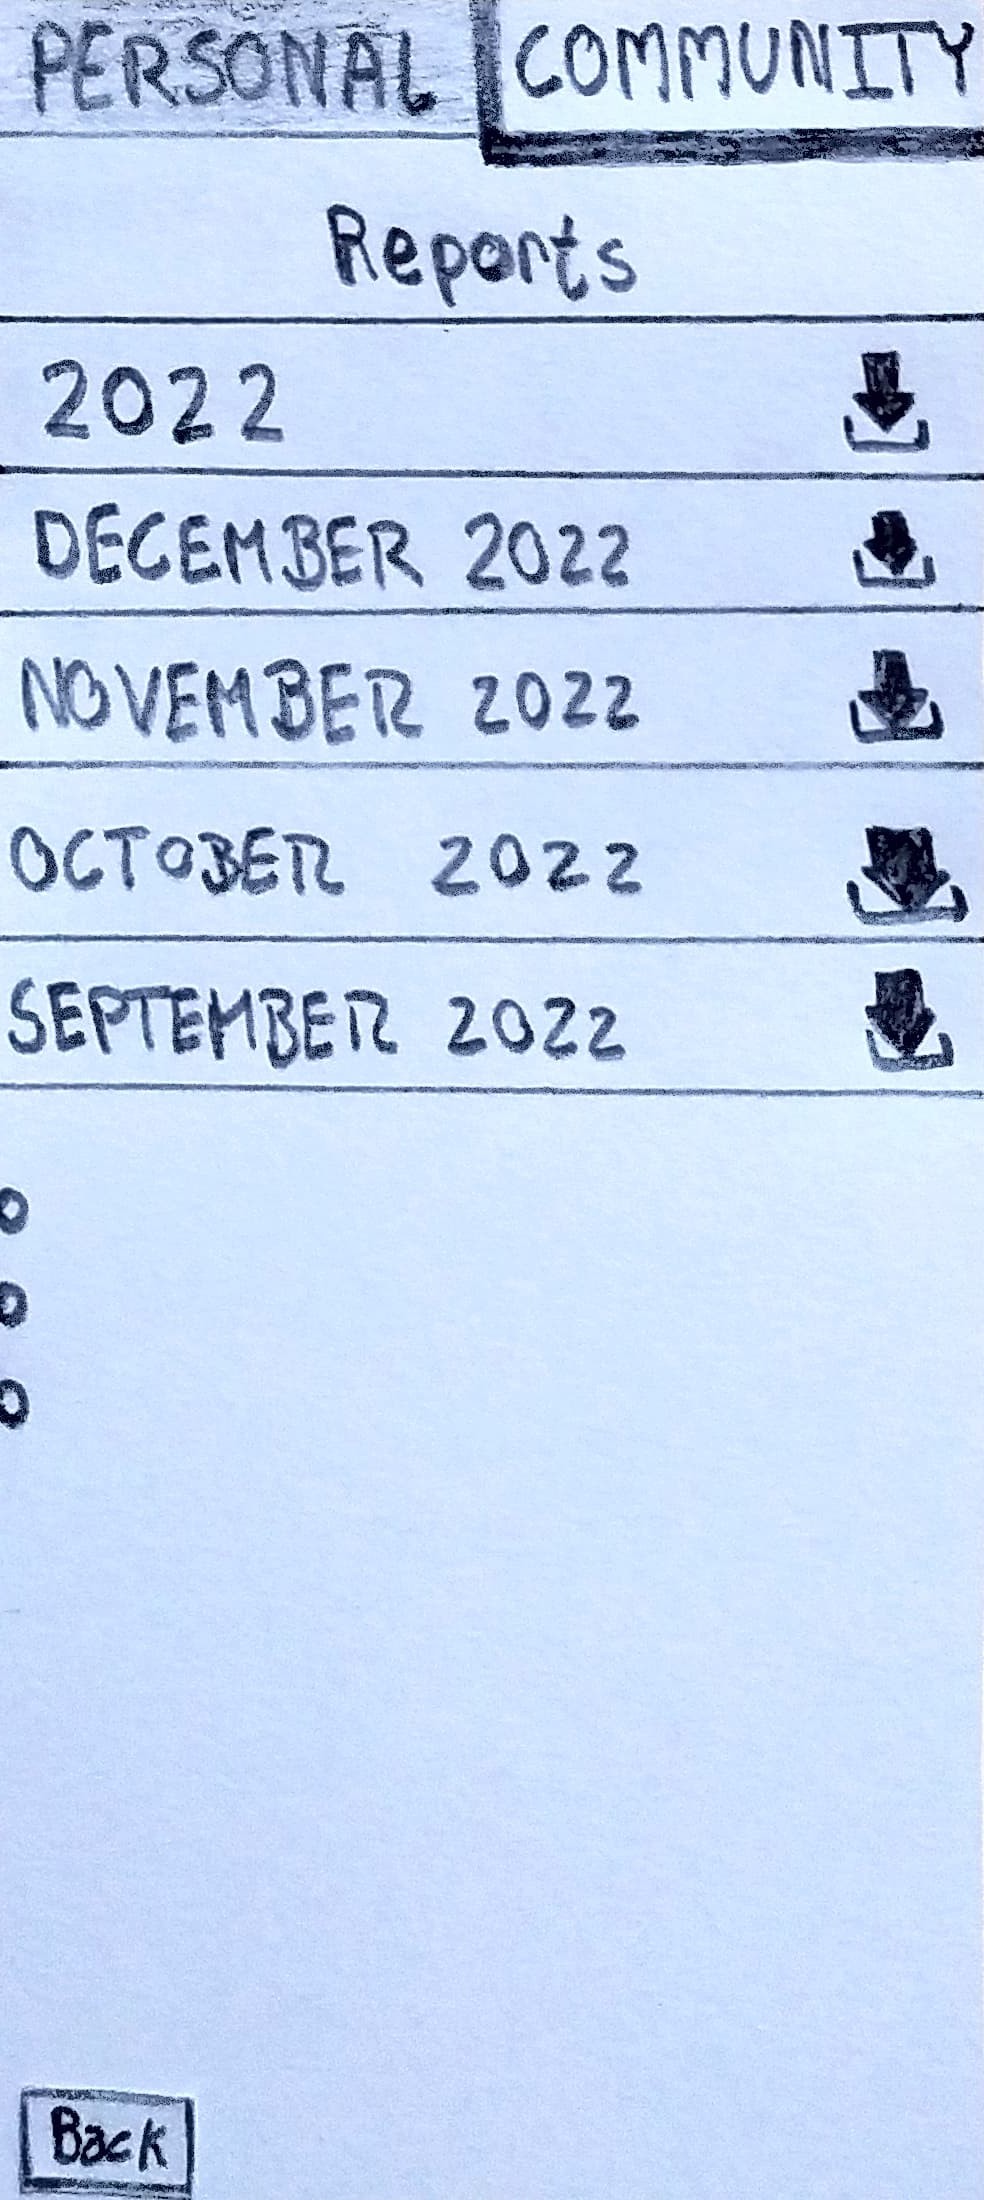 PERSONAL COMMUNITY
Reports
2022
DECEMBER 2022
NOVEMBER 2022
OCTOBER 2022
SEPTEMBER 2022
Back